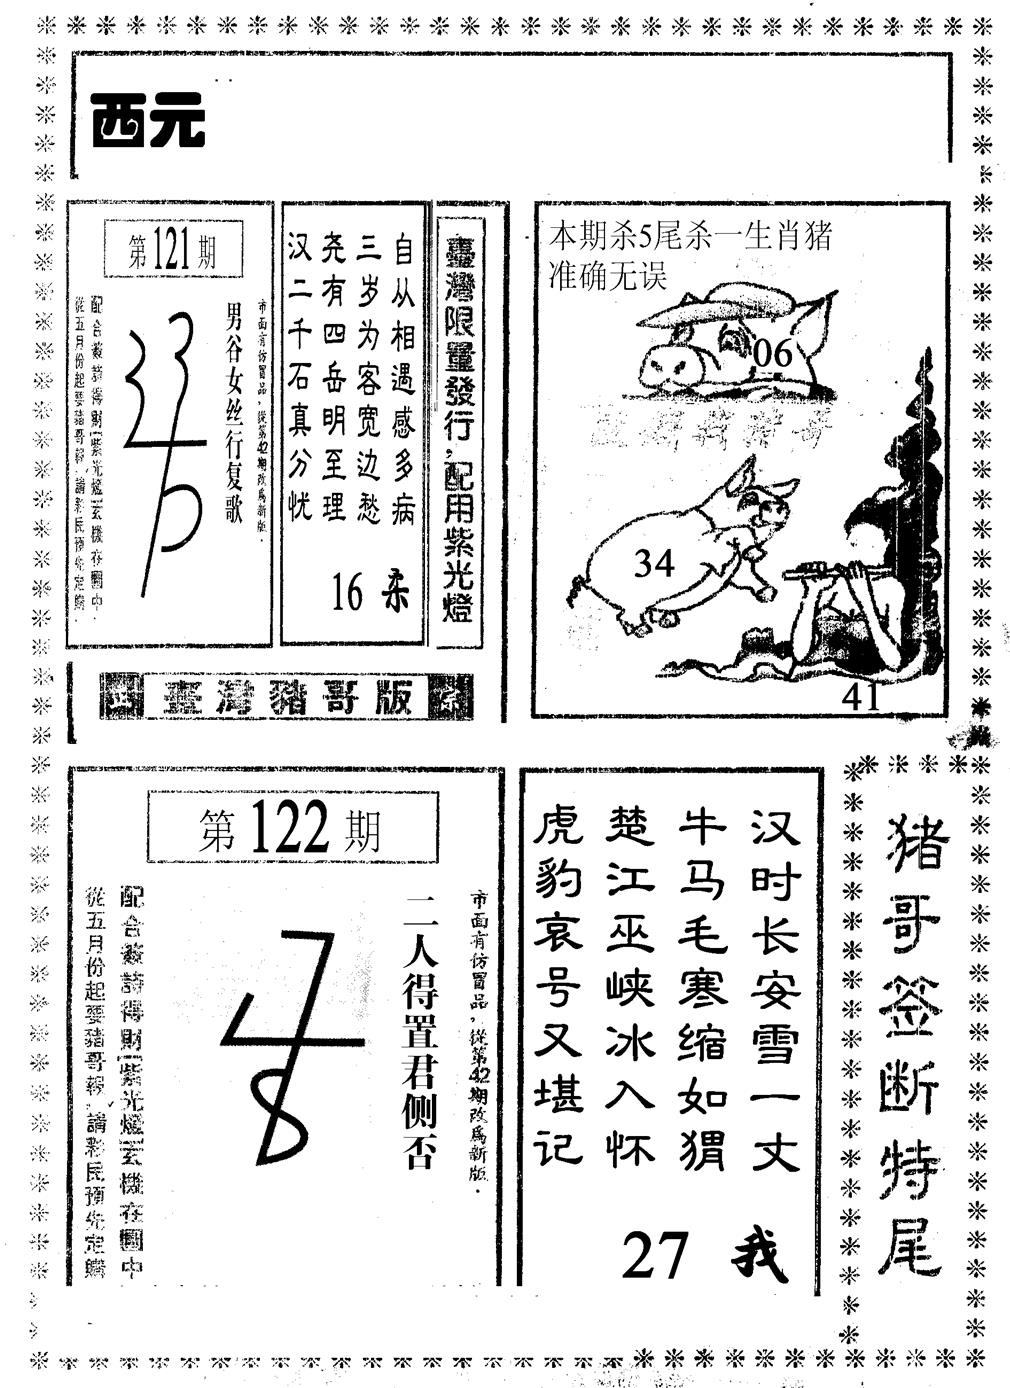 西元
第121期
市面有仿冒品，從第42期改爲新版．
男谷女丝行复歌
配合
詩得財
紫光燈
玄機在圖中．
從五月份起要豬哥報，請彩民預先定購．
自从相遇感多病
三岁为客宽边愁
尧有四岳明至理
汉二千石真分忧
16 柔
臺灣限量發行，配用紫光燈
臺灣豬哥版
本期杀5尾杀一生肖猪
准确无误
06
34
41
第122期
市面有仿冒品，從第42期改爲新版．
二人得置君侧否
配合
詩得財
紫光燈
玄機在圖中
從五月份起要豬哥報，請彩民預先定購
汉时长安雪一丈
牛马毛寒缩如猬
楚江巫峡冰入怀
虎豹哀号又堪记
27 我
猪哥签断特尾